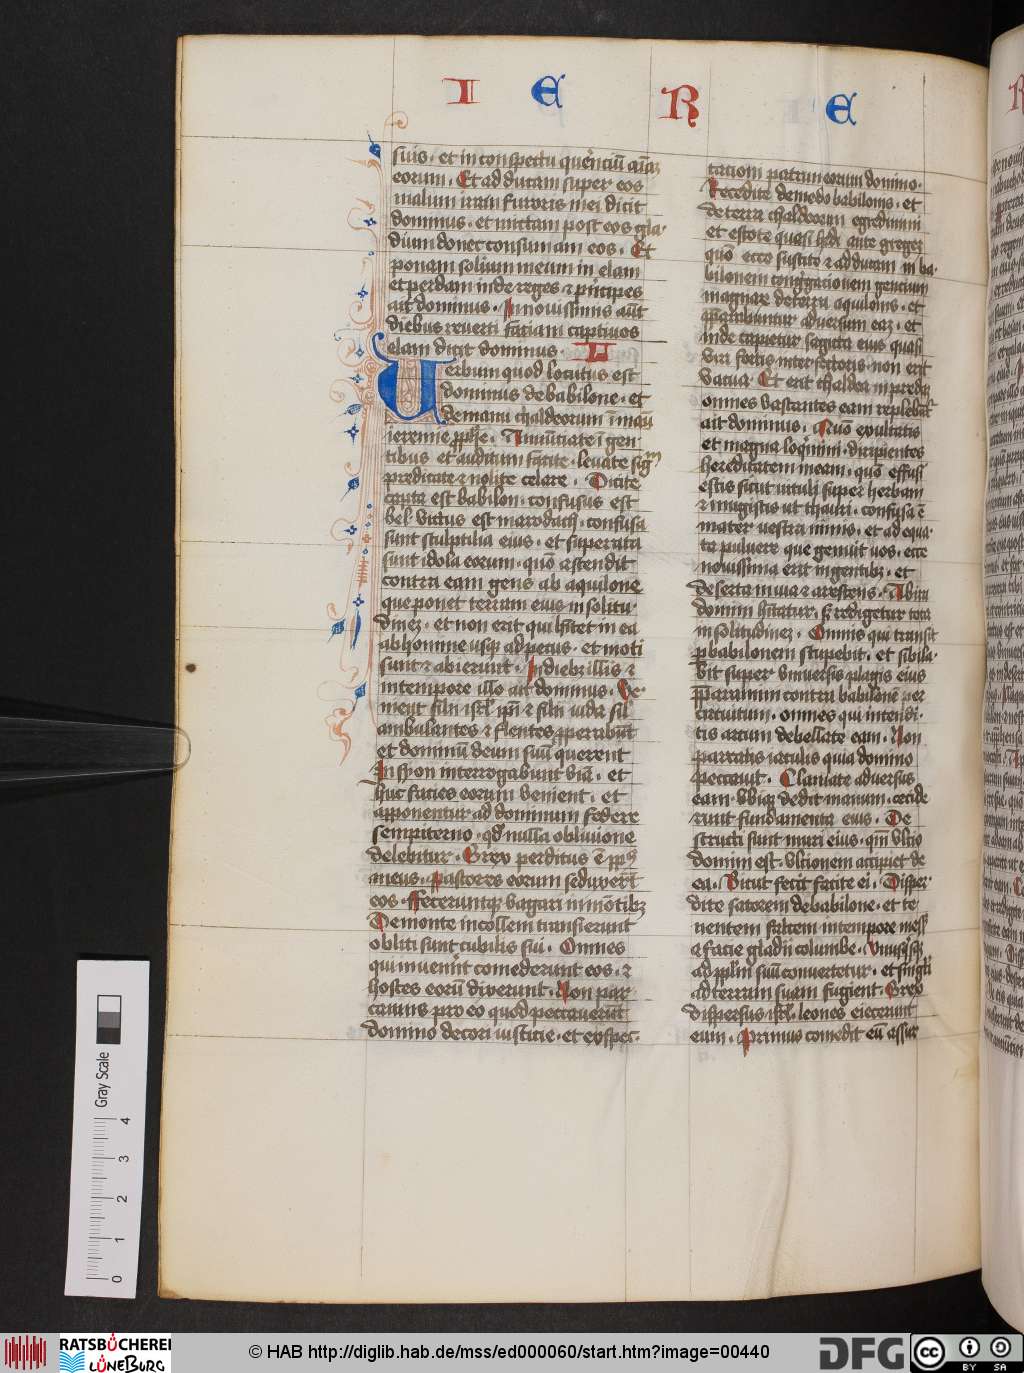 I E R E
suis · et in conspectu querenciū aīaȝ
eorum · Et adducam super eos
malum iram furoris mei dicit
dominus · et mittam post eos gla-
dium donec consumam eos · Et
ponam solium meum in elam
et perdam inde reges ⁊ principes
ait dominus · In novissimis aūt
diebus reverti faciam captivos
elam dicit dominus ·
Verbum quod locutus est
dominus de babilone · et
de manu chaldeorum ī manu
ieremie pphe · Annūtiate ī gen
tibus et auditum facite · levate sigm
predicate ⁊ nolite celare · Dicite
capta est babilon · confusus est
bel · victus est marodach · confusa
sunt sculptilia eius · et superata
sunt idola eorum · quō ascendit
contra eam gens ab aquilone
que ponet terram eius in solitu-
dineȝ · et non erit qui hītet in ea
ab homine usqȝ ad pecus · et moti
sunt ⁊ abierunt · In diebȝ illis ⁊
in tempore illo ait dominus · Ve-
nient filii isrl ipī ⁊ filii iuda sil
ambulantes ⁊ flentes pperabūt
et dominū deum suū querent
In syon interrogabunt viā · et
huc facies eorum venient · et
apponentur ad dominum federe
sempiterno · qd nulla oblivione
delebitur · Grex perditus ē pp̄s
meus · Pastores eorum seduxerūt
eos · Feceruntqȝ vagari in mōtibȝ
De monte in collem transierunt
obliti sunt cubilis sui · Omnes
qui invenerūt comederunt eos · ⁊
hostes eorū dixerunt · Non pec-
cavimus pro eo quod peccaverūt
domino decori iusticie · et exspec-
tacioni patrum eorum domino ·
Recedite de medo babilonis · et
de terra chaldeorum egredimini
et estote quasi hedi ante gregeȝ
quō ecce suscito ⁊ adducam in ba-
bilonem congregacionem gencium
magnare de terra aquilonis · et
pparabuntur adversum eaȝ · et
inde capietur sagitta eius quasi
viri fortis interfectoris · non erit
vacua · Et erit chaldea in predaȝ
omnes vastantes eam replebūtr
ait dominus · Quō exultatis
et magna loqmini · diripientes
hereditatem meam · quō effusi
estis sicut vituli super herbam
⁊ mugistis ut thauri · confusa ē
mater vestra nimis · et adequa-
ta pulvere que genuit vos · ecce
novissima erit in gentibȝ · et
deserta invia ⁊ arescens · Ab ira
domini hītatur · sȝ redigetur tota
in solitudineȝ · Omnis qui transit
p babilonem stupebit · et sibila-
bit super universis plagis eius
pparamini contra babilonē per
circuitum · omnes qui intendi-
tis arcum debellate eam · Non
parcatis iaculis quia domino
peccavit · Clamate adversus
eam · ubiqȝ dedit manum · cecide
runt fundamenta eius · De
structi sunt muri eius · qm̄ ultio
domini est · Ultionem accipiet de
ea · Sicut fecit facite ei · Disper-
dite satorem de babilone · et te-
nentem falcem in tempore mess
a facie gladii columbe · unusqsqȝ
ad pplm suū convertetur · et singli
ad terram suam fugient · Grex
dispersus isrl · leones eiecerunt
eum · Primus comedit eū assur
Gray Scale
0 1 2 3 4
RATSBÜCHEREI
LÜNEBURG
© HAB http://diglib.hab.de/mss/ed000060/start.htm?image=00440
DFG
cc
BY SA